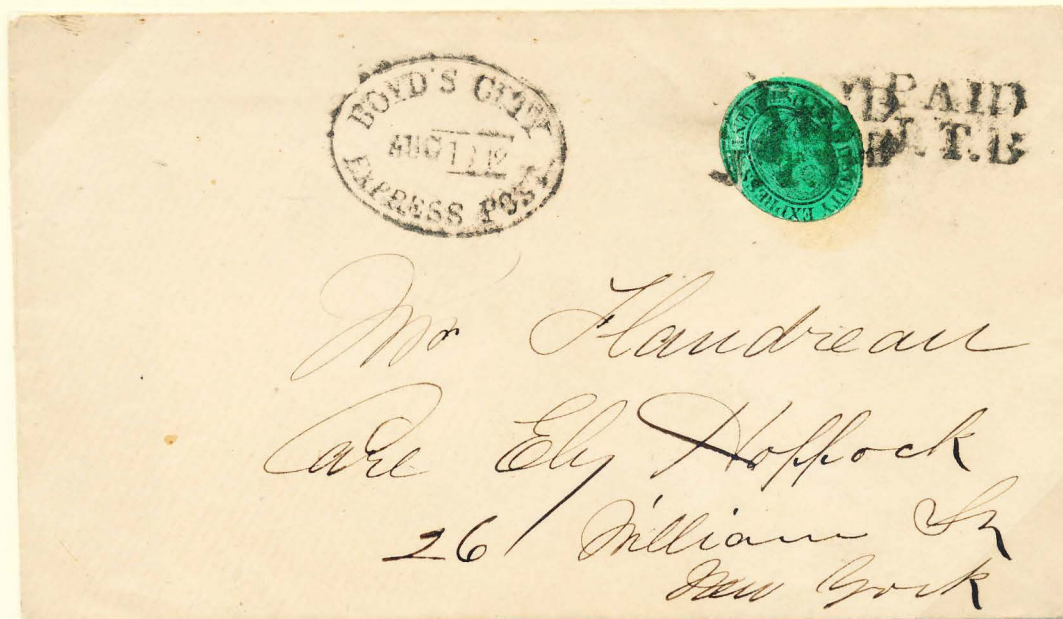 BOYD'S CITY
AUG 11 12
EXPRESS POST
PAID
J.T.B
CITY EXPRESS
Mr Flandreau
Care Ely Hoppock
26 William St
New York